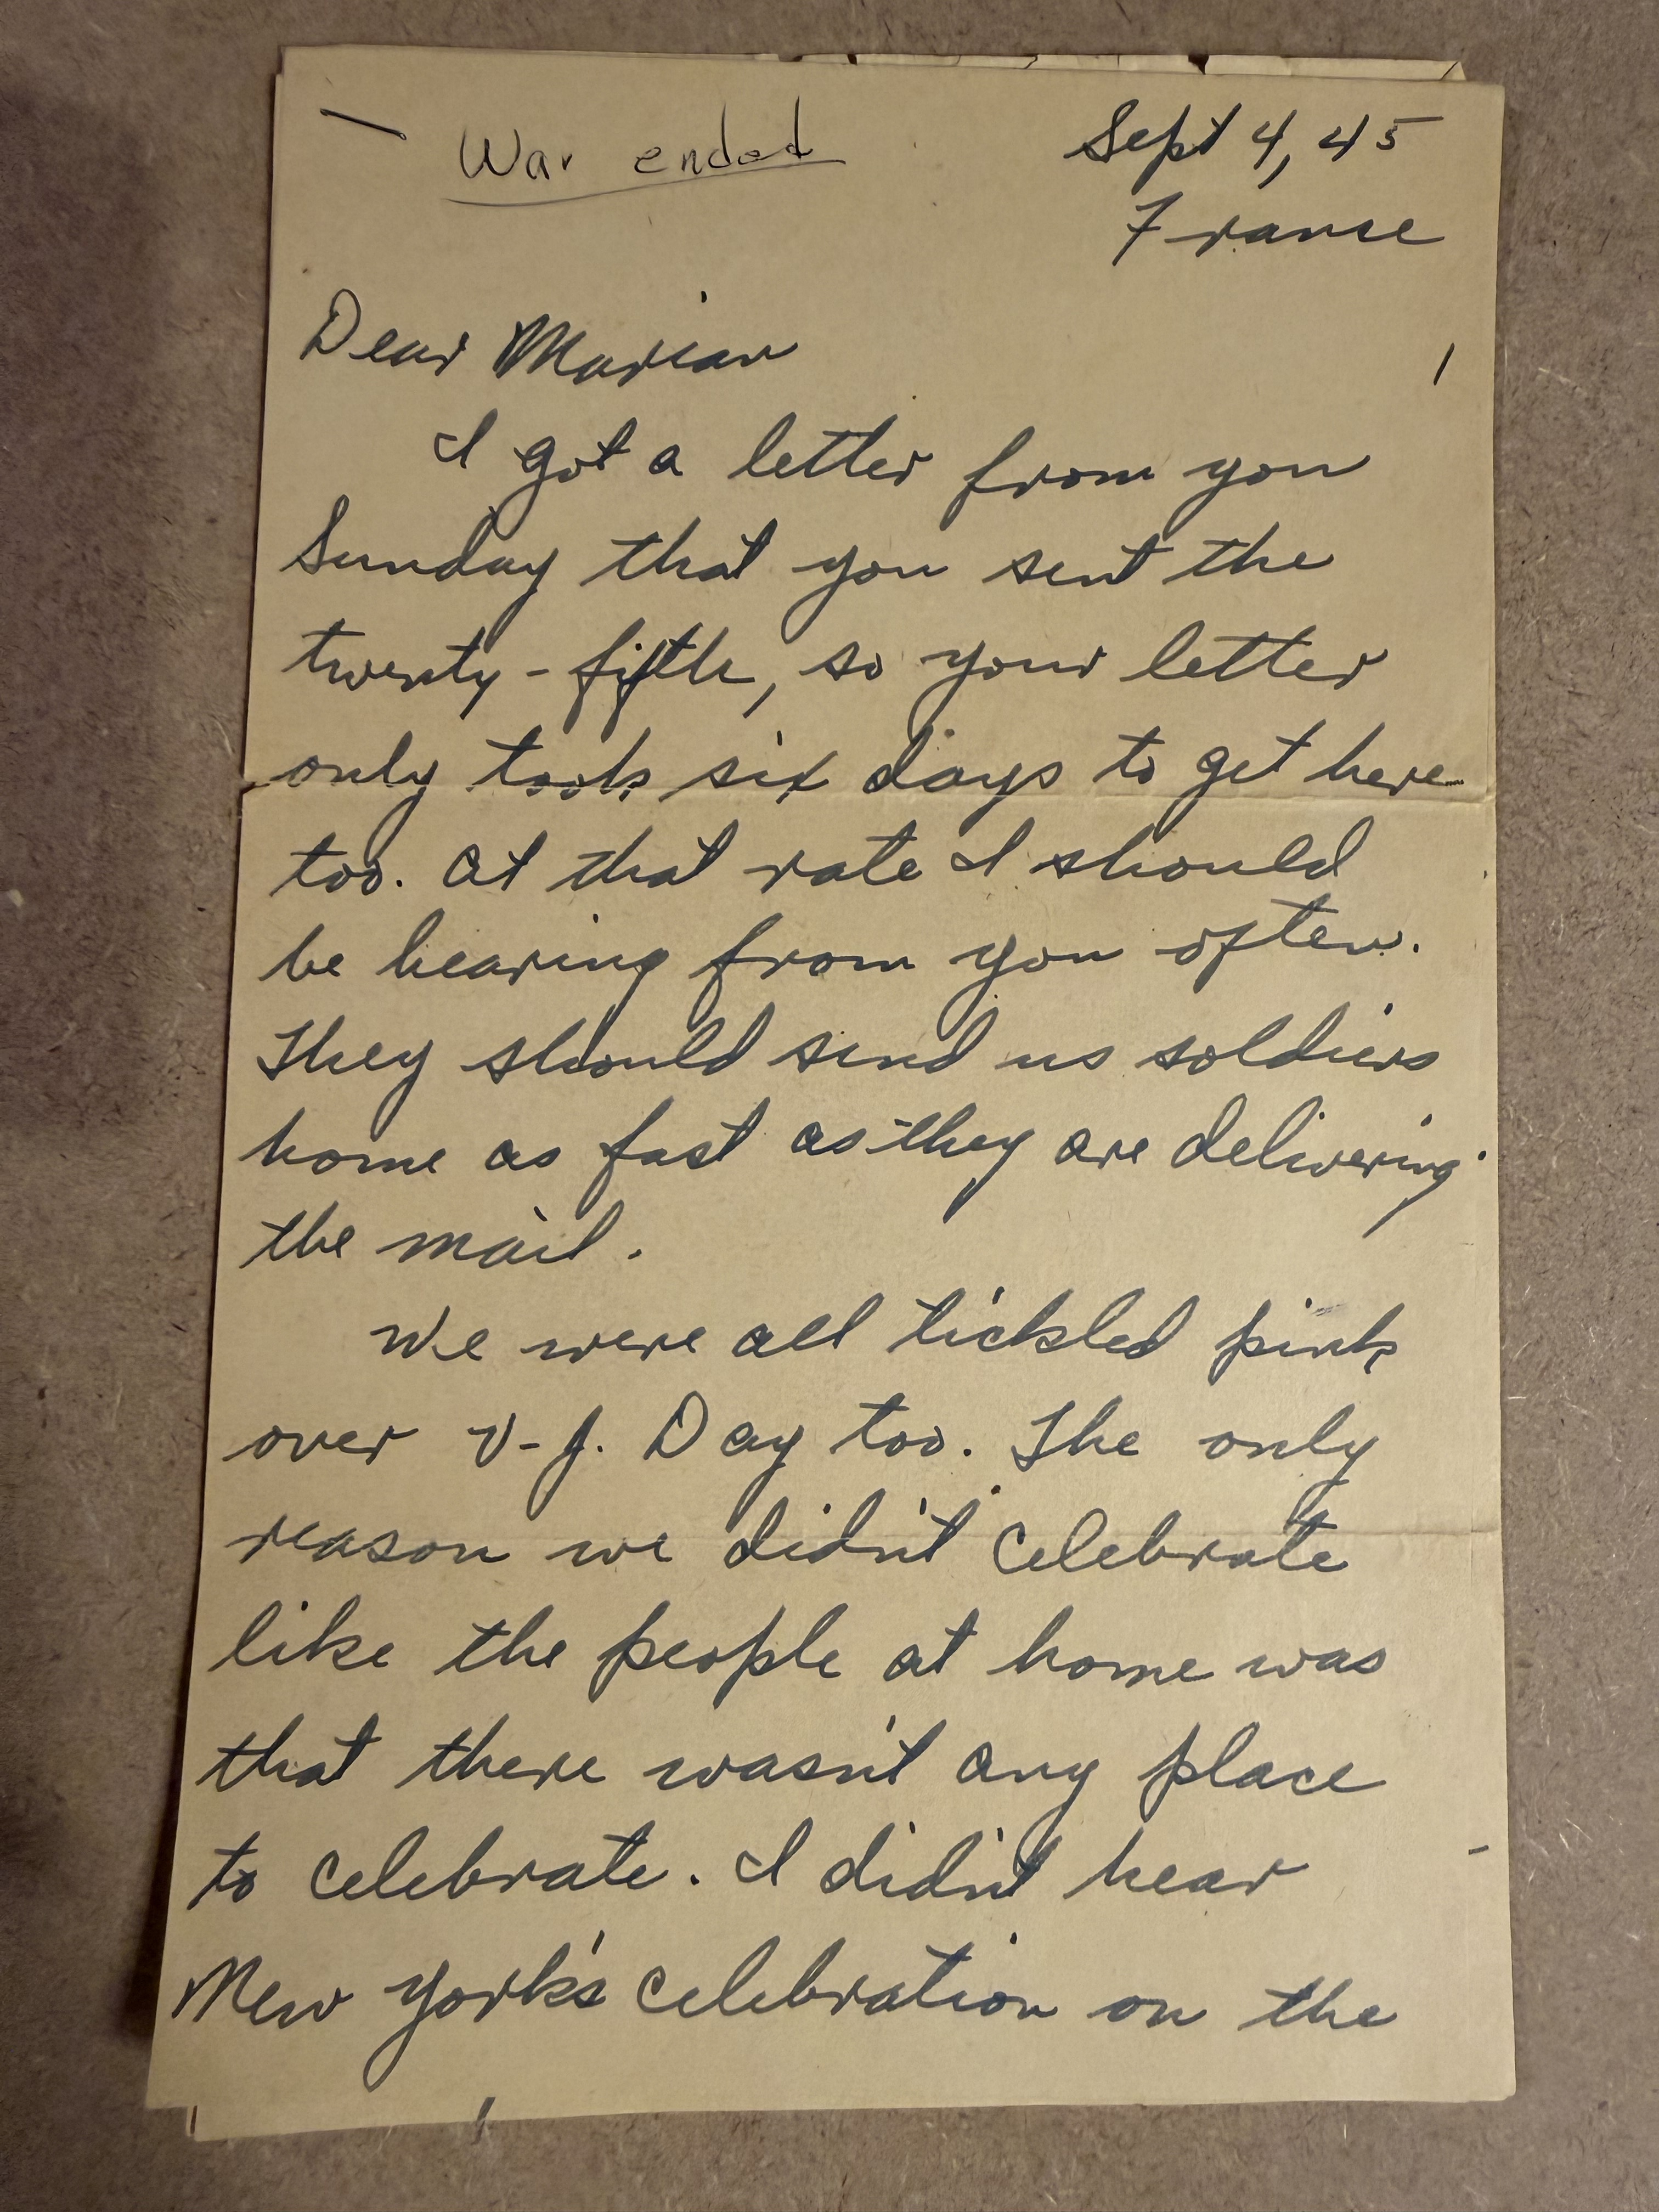 War ended
Sept 4, 45
France
Dear Marian
I got a letter from you
Sunday that you sent the
twenty-fifth, so your letter
only took six days to get here
too. At that rate I should
be hearing from you often.
They should send us soldiers
home as fast as they are delivering
the mail.
We were all tickled pink
over V-J. Day too. The only
reason we didn't celebrate
like the people at home was
that there wasn't any place
to celebrate. I didn't hear
New York's celebration on the